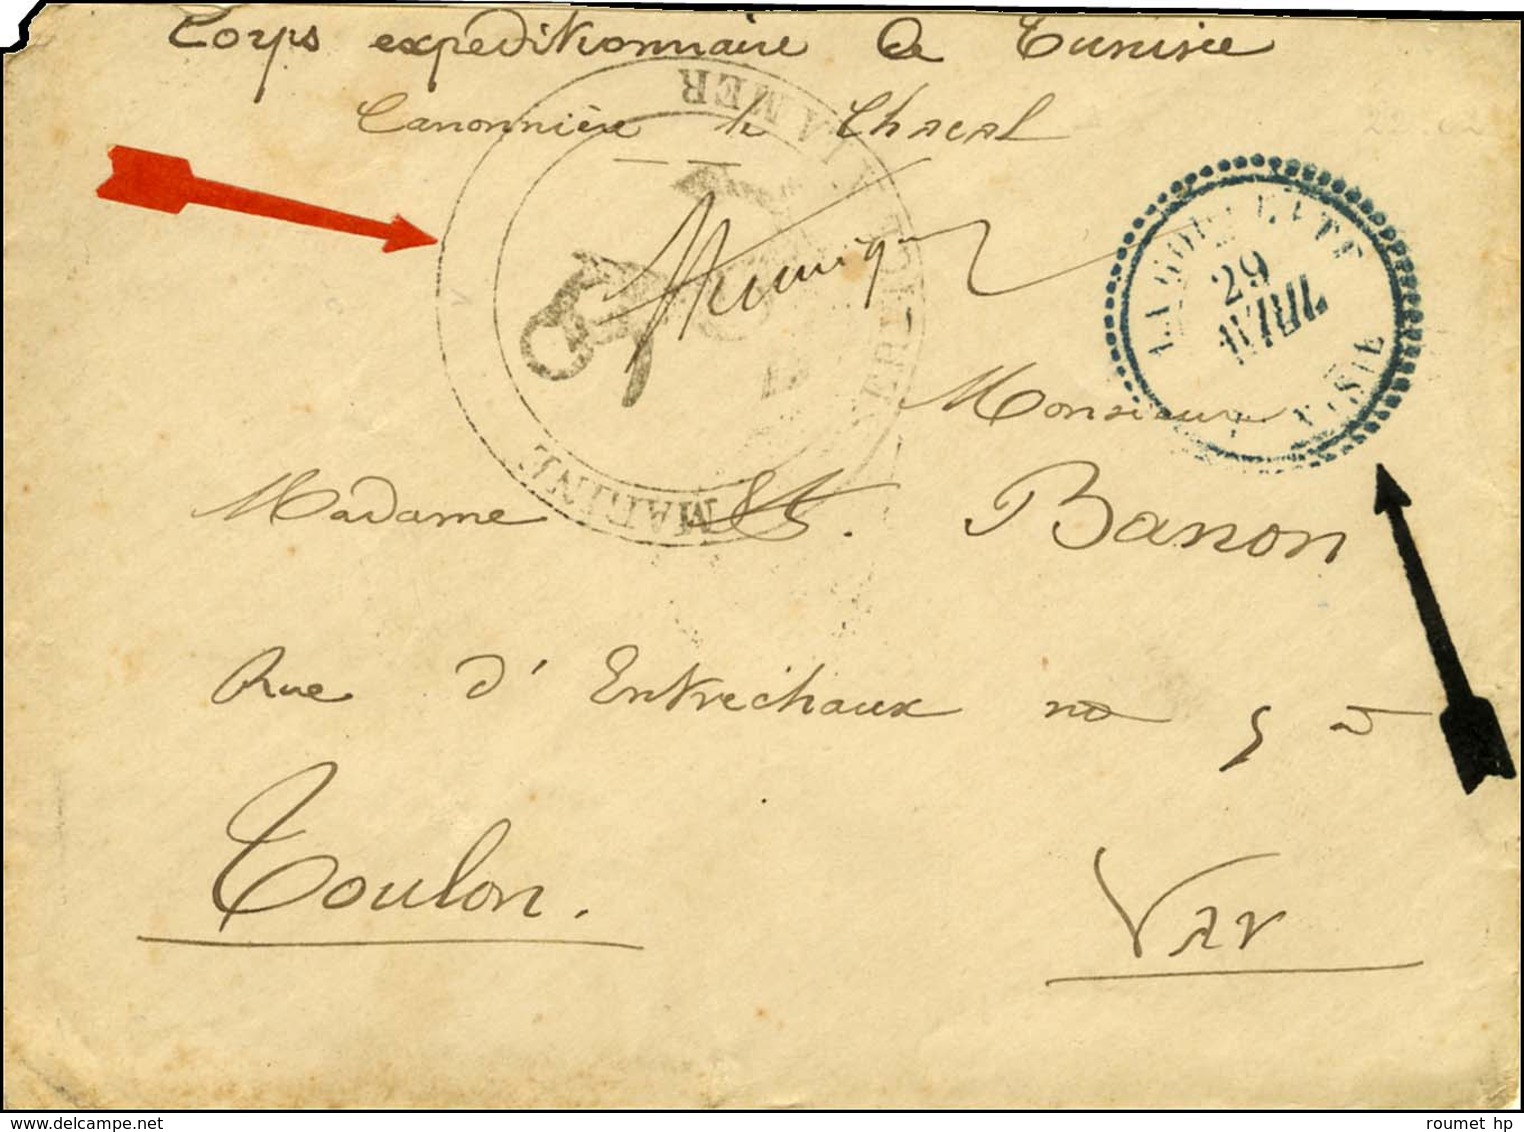 Corps expeditionnaire de Tunisie
Canonnière le Chacal
MARINE
SERVICE A LA MER
LA GOULETTE
29
AVRIL
TUNISIE
Monsieur
Madame Banon
Rue d'Entrechaux no 5
Toulon.
Var
delcampe.net
roumet hp